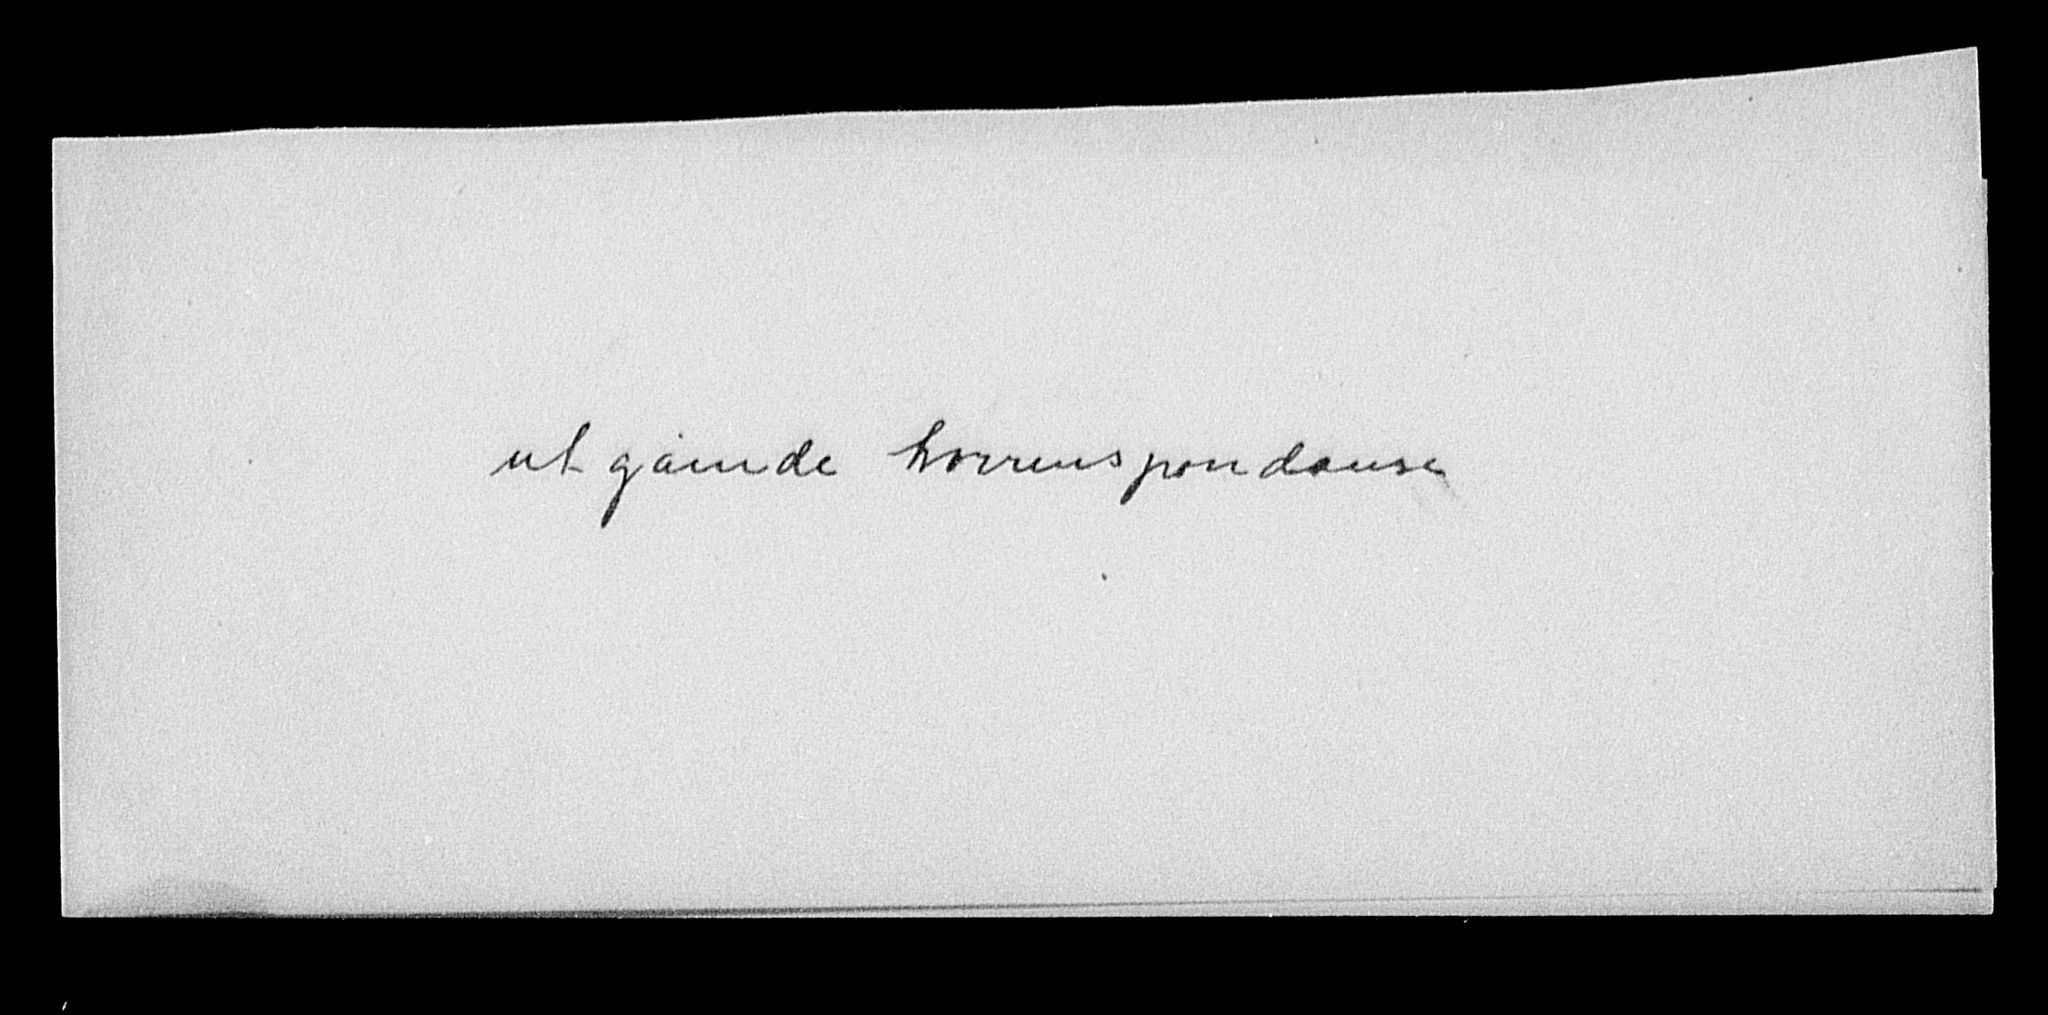 utgående korrenspondanse